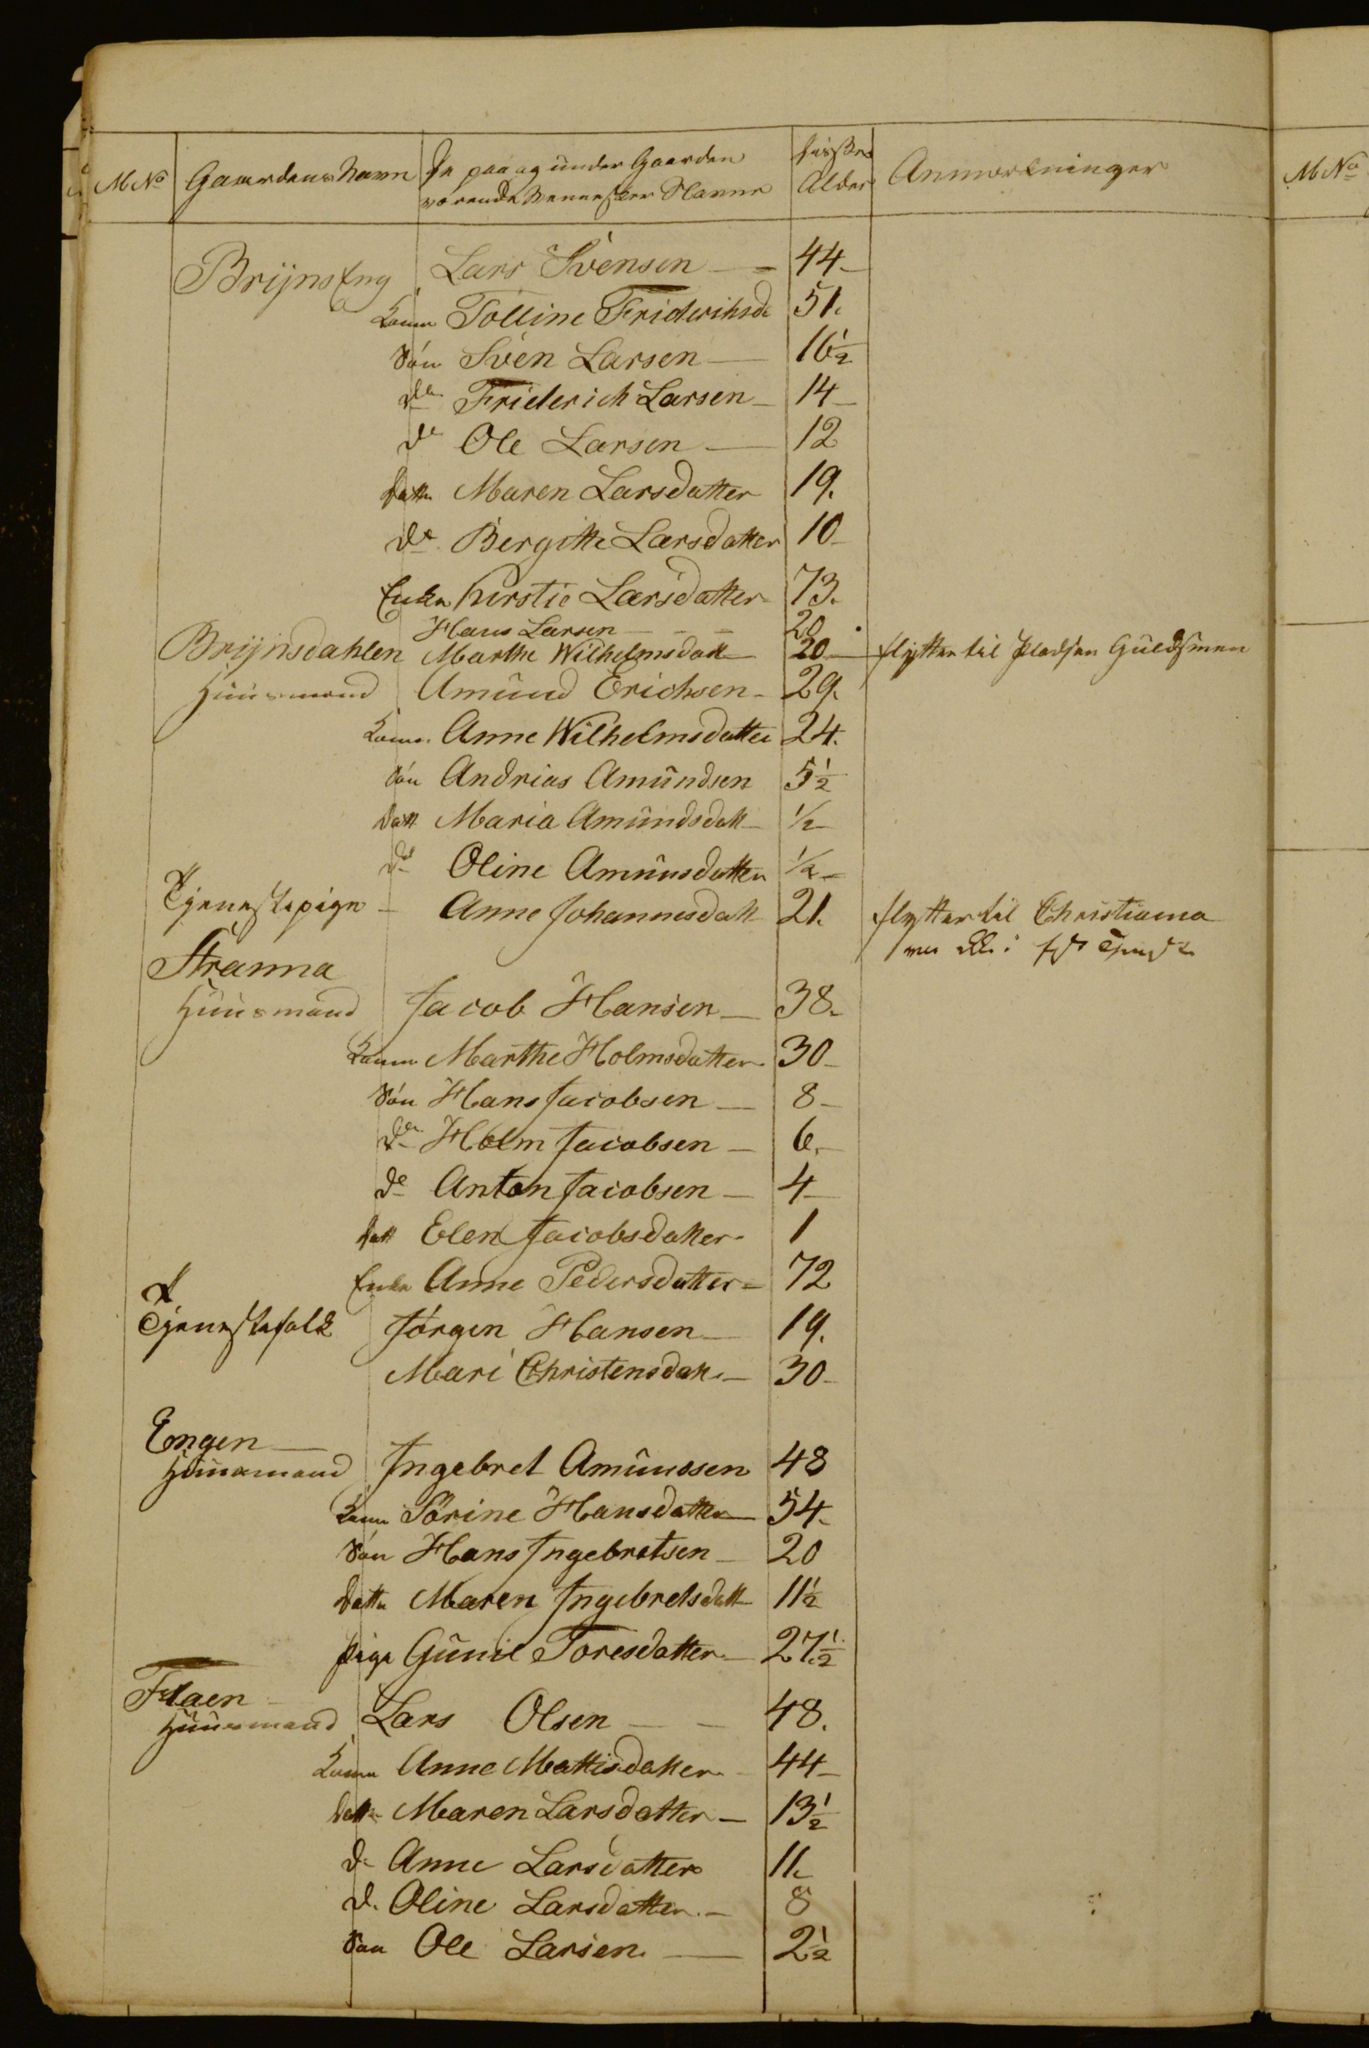 M No Gaardens Navn De paa og under Gaarden værende Menneskers Navne disses Alder Anmærkninger M No
BrijnsEng Lars Svensen — 44
Kone Tolline Friderihsd 51.
Søn Sven Larsen — 16½
do Friderich Larsen — 14
do Ole Larsen — 12
Datter Maren Larsdatter 19.
do Bergitte Larsdatter 10
Enke Kirstie Larsdatter 73.
Hans Larsen — 20
Brijnsdahlen Marthe Wilhelmsdatt 20 flytter til Pladsen Guldsmen
Huusmand Amund Erichsen 29.
Kone Anne Wilhelmsdatter 24.
Søn Andrias Amundsen 5½
Datt Maria Amundsdatt ½
do Oline Amunsdatter ½
Tjenestepige — Anne Johannesdatt 21. flytter til Christiania
Stranna
Huusmand Jacob Hansen — 38.
Kone Marthe Holmsdatter 30
Søn Hans Jacobsen — 8
do Holm Jacobsen — 6.
do Anton Jacobsen — 4
datt Elen Jacobsdatter 1
Enke Anne Pedersdatter 72
Tjenestefolk Jørgen Hansen — 19.
Mari Christensdatt. — 30
Engen —
Huusmand Ingebret Amundsen 48
Kone Sørine Hansdatter — 54.
Søn Hans Ingebretsen — 20
Datter Maren Ingebretsdatt 11½
Pige Gunil Toresdatter — 27½
Flaen
Huusmand Lars Olsen — 48.
Kone Anne Mattisdatter 44
datt Maren Larsdatter — 13½
d. Anne Larsdatter 11.
d. Oline Larsdatter — 8
Søn Ole Larsen. — 2½